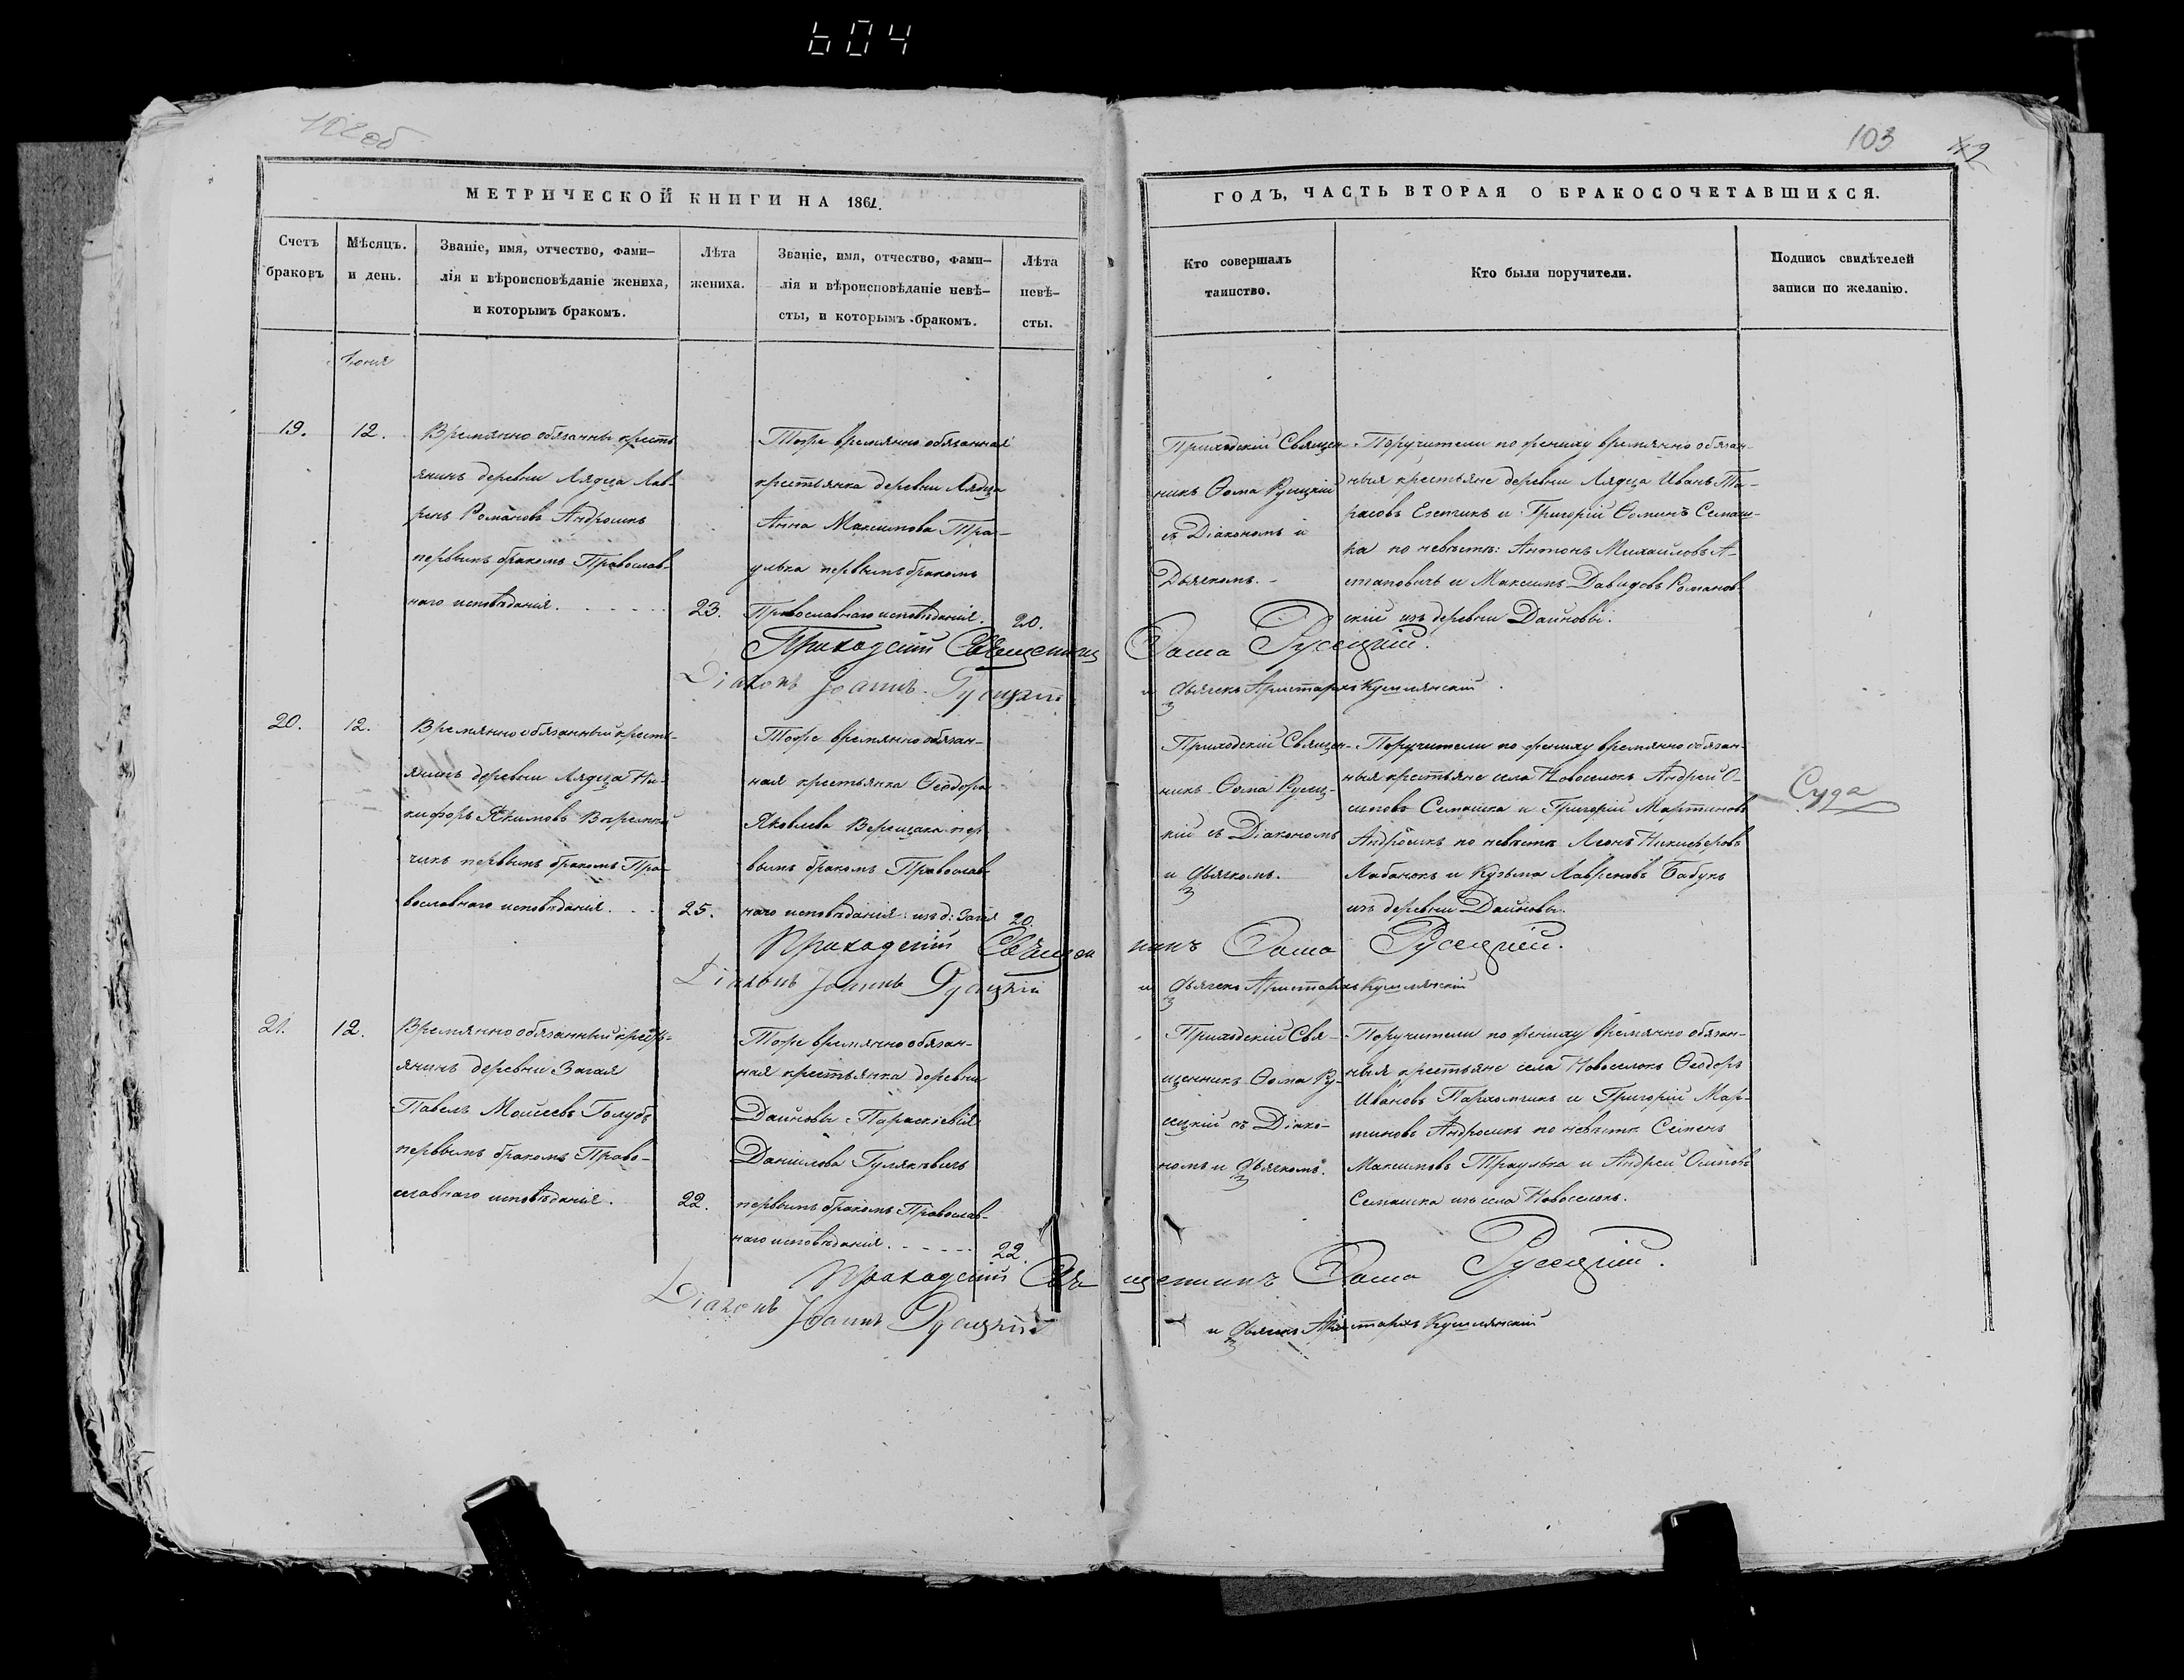 604
102 об
103
МЕТРИЧЕСКОЙ КНИГИ НА 1861.
ГОДЪ, ЧАСТЬ ВТОРАЯ О БРАКОСОЧЕТАВШИХСЯ.
Счетъ браковъ
Мѣсяцъ. и день.
Званіе, имя, отчество, фами-
лія и вѣроисповѣданіе жениха,
и которымъ бракомъ.
Лѣта жениха.
Званіе, имя, отчество, фами-
лія и вѣроисповѣданіе невѣ-
сты, и которымъ бракомъ.
Лѣта невѣ-
сты.
Кто совершалъ
таинство.
Кто были поручители.
Подпись свидѣтелей
записи по желанію.
Іюня
19.
12.
Времянно обязанны кресть
янинъ деревни Лядца Лав-
репъ Романовъ Андросикъ
первымъ бракомъ Православ-
наго исповѣданія.
23.
Тоже времянно обязанная
крестьянка деревни Лядца
Анна Максимова Тра-
улька первымъ бракомъ
Православнаго исповѣданія.
20.
Приходскій Священ-
никъ Ѳома Русицкій
съ Діакономъ и
Дьячкомъ.
Поручители по жениху времянно обязан-
ныя крестьяне деревни Лядца Иванъ Та-
расовъ и Григорій Ѳоминъ Семаш-
ка по невѣстѣ: Антонъ Михайловъ А-
стаповичъ и Максимъ Давидовъ Романов-
скій изъ деревни Дайновы.
Приходскій Священникъ Ѳома Русецкій.
Діаконъ Іоаннъ Русицкій
и Дьячекъ Аристархъ Кушлянскій
20.
12.
Времянно обязанный кресть-
янинъ деревни Лядца Ни-
кифоръ Якимовъ
чикъ первымъ бракомъ Пра-
вославнаго исповѣданія.
25.
Тоже времянно обязан-
ная крестьянка Ѳеодора
Яковлева Верещака пер
вымъ бракомъ Православ-
наго исповѣданія: изъ д: Загая
20.
Приходскій Священ-
никъ Ѳома Русиц-
кій съ Діакономъ
и Дьячкомъ.
Поручители по жениху времянно обязан-
ныя крестьяне села Новоселокъ Андрей О-
сиповъ Семашка и Григорій Мартиновъ
Андросикъ по невѣстѣ Леонъ Никифоровъ
Лабанокъ и Кузьма Лавреновъ Бабукъ
изъ деревни Дайновы.
Суда
Приходскій Священникъ Ѳома Русецкій.
Діаконъ Іоаннъ Русицкій
и Дьячекъ Аристархъ Кушлянскій
21.
12.
Времянно обязанный кресть-
янинъ деревни Загая
Павелъ Моисеевъ Голубъ
первымъ бракомъ Право-
славнаго исповѣданія.
22.
Тоже времянно обязан-
ная крестьянка деревни
Дайновы Параскіевія
Даніилова Гулякевичъ
первымъ бракомъ Православ-
наго исповѣданія.
22.
Приходскій Свя-
щенникъ Ѳома Ру-
сицкій съ Діако-
номъ и Дьячкомъ.
Поручители по жениху времянно обязан-
ныя крестьяне села Новоселокъ Ѳеодоръ
Ивановъ Пархомчикъ и Григорій Мар-
тиновъ Андросикъ по невѣстѣ Семенъ
Максимовъ Траулька и Андрей Осиповъ
Семашка изъ села Новоселокъ.
Приходскій Священникъ Ѳома Русецкій.
Діаконъ Іоаннъ Русицкій
и Дьячекъ Аристархъ Кушлянскій